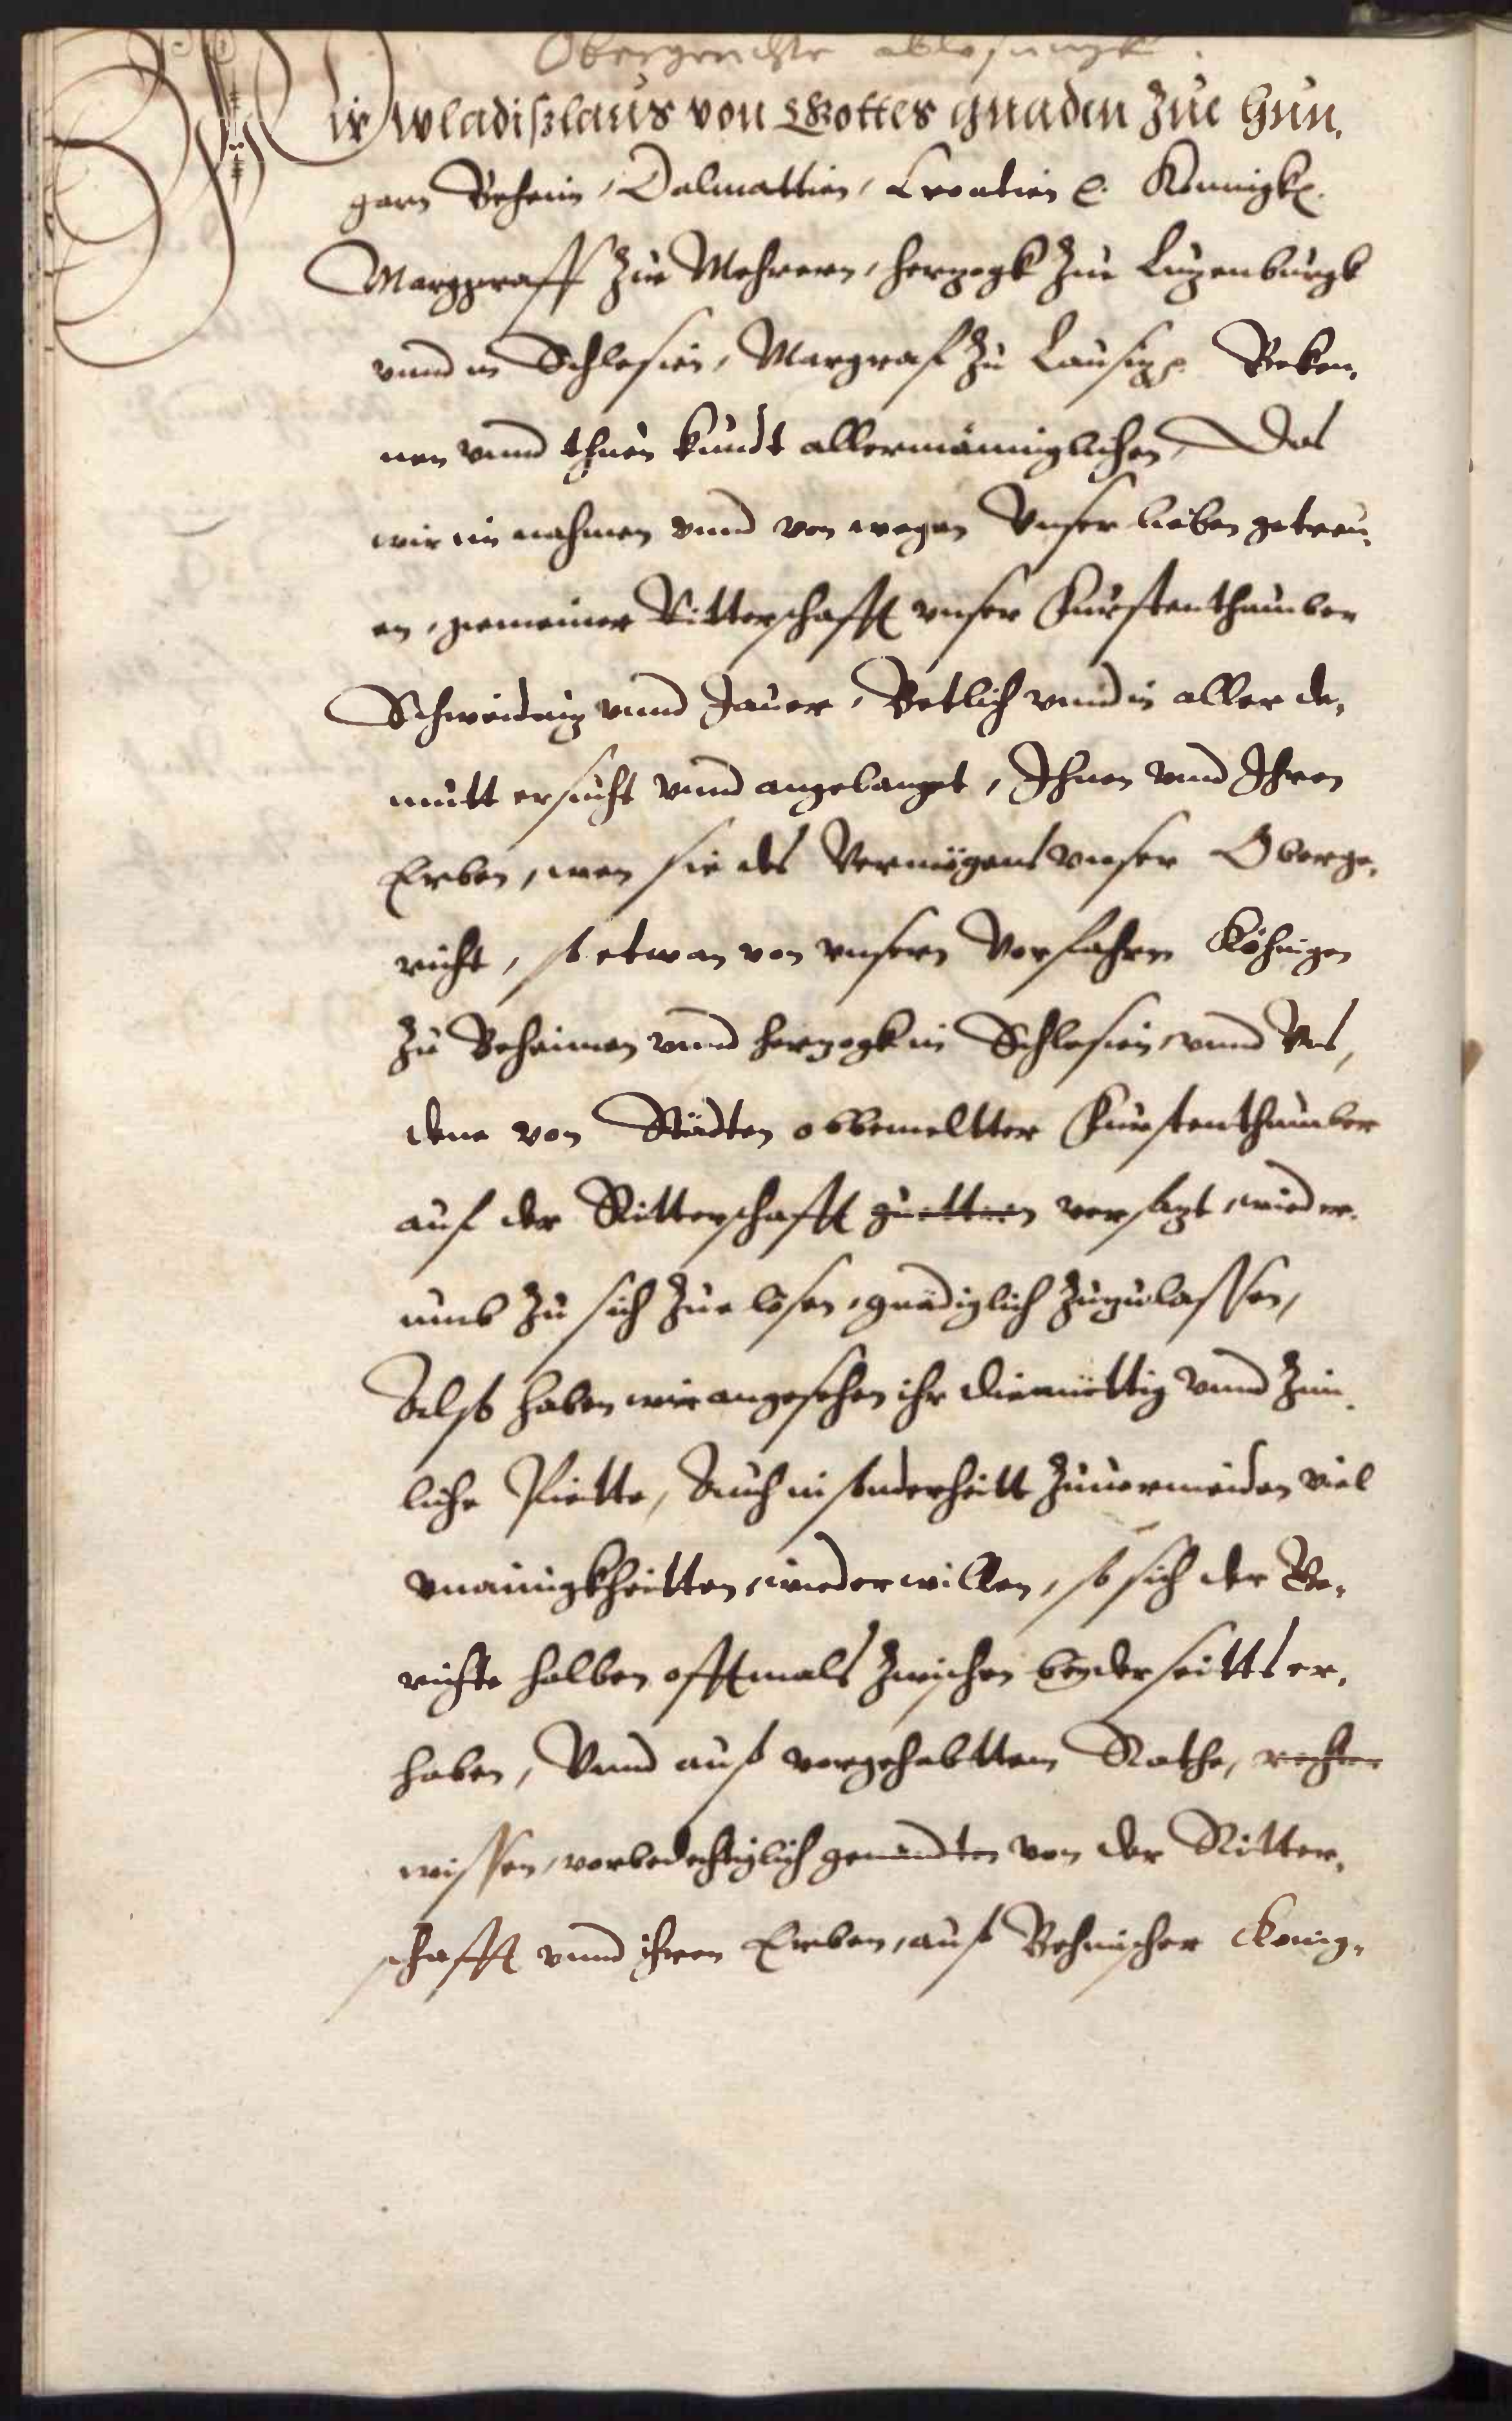 Obergerichte ablosungk
Wir Wladißlaus von Gottes gnaden zue Hun,
garn Beheim, Dalmattien, Croatien ꝛc. Konnigk ꝛc.
Marggraff zue Mehrern, herzogk zue Luzenburgk
vnnd in Schlesien, Margraf zu Lausiz ꝛc. Beken,
nen vnnd thuen kundt allermänniglichen, Das
wir im nahmen vnnd von wegen Vnser lieben getreu,
en, gemeiner Ritterschafft vnser Fürstenthumber
Schweidniz vnnd Jauer, Betlich vnnd in aller de,
mutt ersucht vnnd angelanget, Ihnen vnnd Ihren
Erben, wen sie des Vermögens vnser Oberge,
richt, so etwan von vnsern Vorfahren Köhnigen
zu Beheimen vnnd herzogk in Schlesien, vnnd Vns,
dene von Städten obbemeltter Fürstenthumber
auf der Ritterschafft guettern versazt, wieder,
umb zu sich zue lösen, gnädiglich zuzulassen,
Alß haben wir angesehen ihr diemüttig vnnd zim,
liche Piette, Auch in sonderheitt zuuermeiden viel
vneinigkheitten, wiederwillen, so sich der Ge,
richte halben offtmals zwischen beyderseitts er,
haben, Vnnd auß vorgehabttem Rathe, rechter
wissen, vorbedechtiglich genandten von der Ritter,
schafft vnnd ihren Erben, auß Behmischer König,